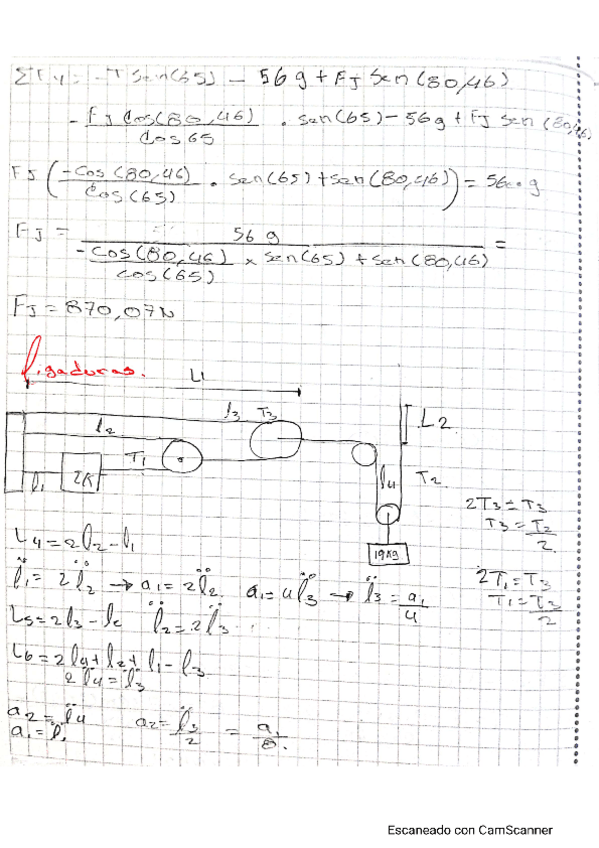 ΣFy = -T sen(65) - 56g + FJ Sen(80,46)
- FJ Cos(80,46) / Cos 65 . sen(65) - 56g + FJ sen(80,46)
FJ ( -Cos(80,46) / Cos(65) . sen(65) + sen(80,46) ) = 56 . g
FJ = 56 g / ( -Cos(80,46) / cos(65) × sen(65) + sen(80,46) ) =
FJ = 870,07N
ligaduras.
L1
l3 T3
L2
l2
T1
l1
2K
l4
T2
19Kg
2T3 = T3
T3 = T2/2.
2T1 = T3
T1 = T3/2
L4 = 2l2 - l1
l̈1 = 2l̈2 → a1 = 2l̈2. a1 = 4l̈3 → l̈3 = a1/4
L5 = 2l3 - l2 l̈2 = 2l̈3
L6 = 2l4 + l2 + l1 - l3
2l̈4 = l̈3
a2 = l̈4 a2 = l̈3/2 = a1/8.
a1 = l̈1
Escaneado con CamScanner